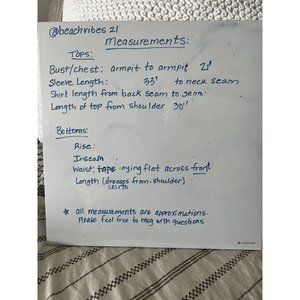 @beachvibes 21
Measurements:
Tops:
Bust/chest: armpit to armpit 21"
Sleeve Length: 33" to neck seam
Shirt length from back seam to
Length of top from shoulder 30"
Bottoms:
Rise:
Inseam
Waist: tape laying flat across front
Length (dresses from shoulder)
skirts
* all measurements are approximations.
Please feel free to msg with questions